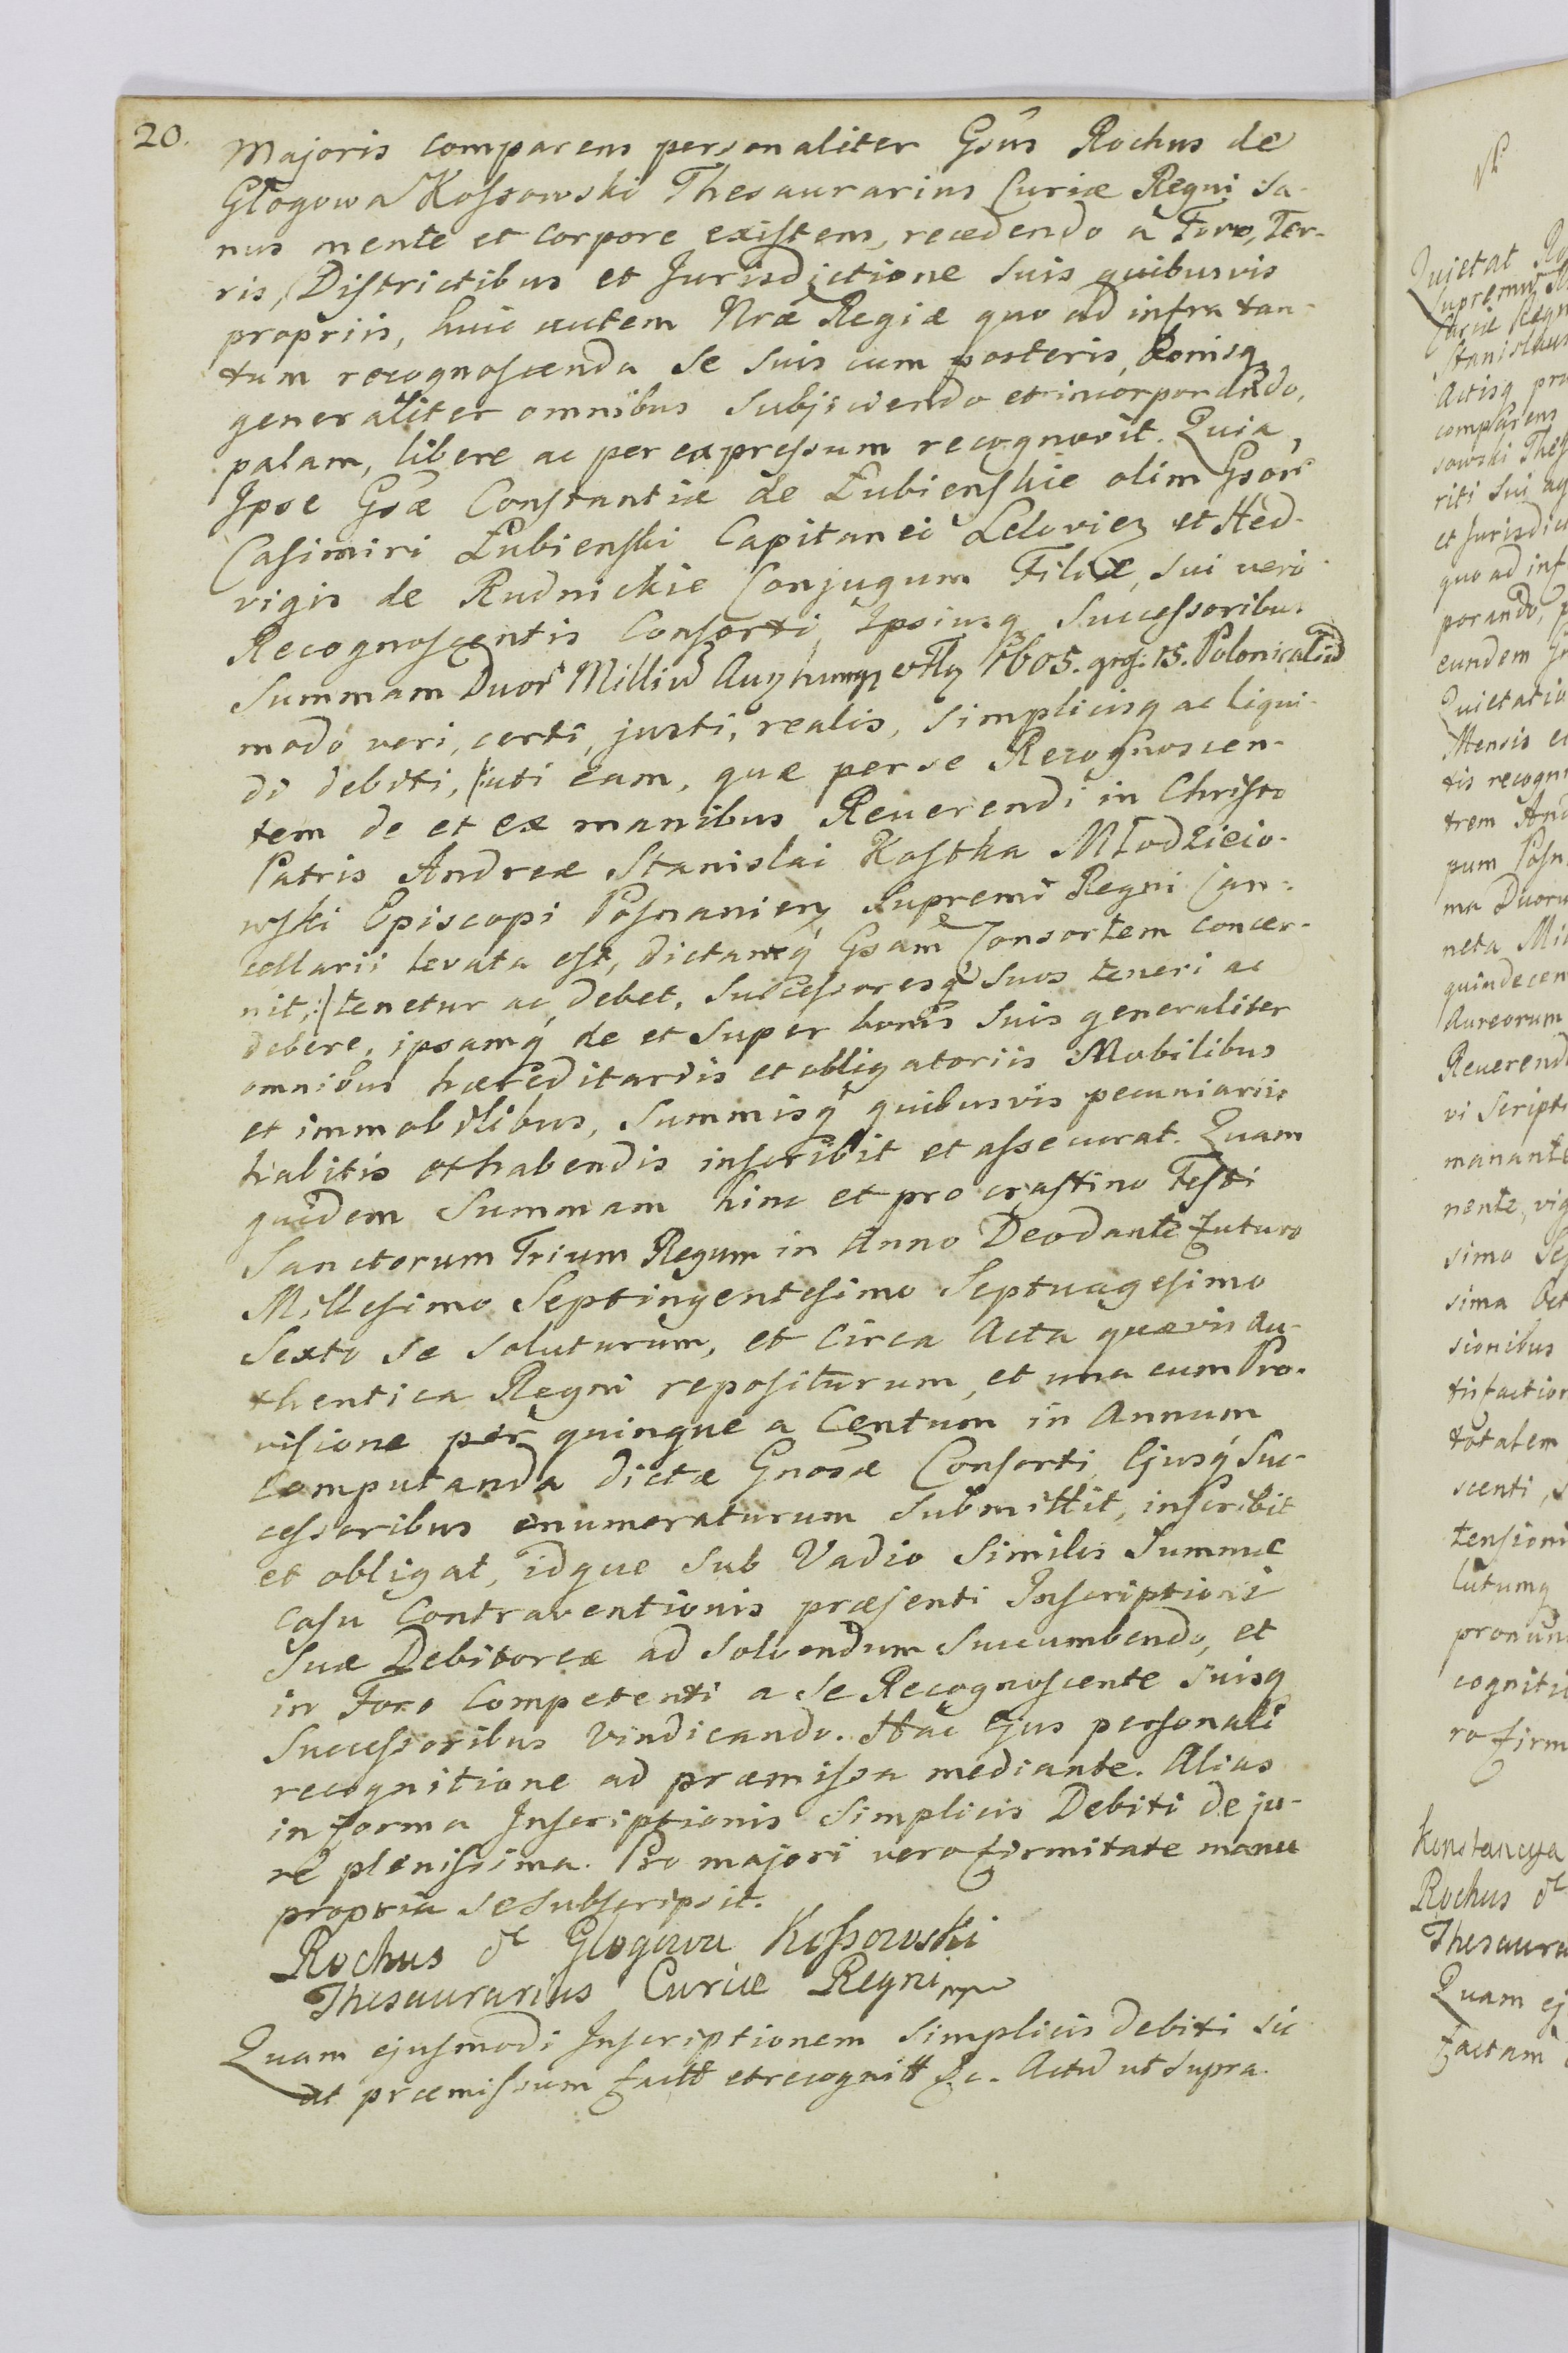 20.
Majoris comparens personaliter Gsus Rochus de
Głogowa Kossowski Thesaurarius Curiæ Regni sa-
nus mente et corpore existens, recedendo a Foro, Ter-
ris, Districtibus et Jurisdictione suis quibusvis
propriis, huic autem Nræ Regiæ quo ad infra tan-
tum recognoscenda se suis cum posteris, bonisq
generaliter omnibus subjiciendo et incorporando,
palam, libere ac per expressum recognovit. Quia,
Ipse Gsæ Constantiæ de Łubienskie olim Gsor
Casimiri Łubienski Capitanei Leloviez et Hed-
vigis de Rudnickie Conjugum Filiæ, sui vero
Recognoscentis Consorti, Ipsiusq Successoribus
Summam Duor Milliu 1605. grs. 15. Polonicaliu
modo veri, certi, justi, realis, simplicisq ac liqui-
di debiti, /:uti eam, quæ per se Recognoscen-
tem de et ex manibus Reverendi in Christo
Patris Andreæ Stanislai Kostka Młodzieio-
wski Episcopi Posnanien, Supremi Regni Can-
cellarii levata est, dictamq Gsam Consortem concer-
nit,:/ tenetur ac debet, Successoresq suos teneri ac
debere, ipsamq de et super bonis suis generaliter
omnibus hæreditariis et obligatoriis Mobilibus
et immobilibus, summisq quibusvis pecuniariis
habitis et habendis inscribit et assecurat. Quam
quidem Summam hinc et pro crastino Festi
Sanctorum Trium Regum in Anno Deo dante futuro
Millesimo Septingentesimo Septuagesimo
Sexto se soluturum, et circa Acta quævis Au-
thentica Regni repositurum, et una cum Pro-
visione per quinque a Centum in Annum
computanda dictæ Gnosæ Consorti, Ejusq Suc-
cessoribus enumeraturum submittit, inscribit
et obligat, idque sub Vadio similis Summæ
casu Contraventionis præsenti Inscriptioni
Suæ Debitoreæ ad solvendum succumbendo, et
in Foro Competenti a se Recognoscente suisq
Successoribus vindicando. Hac Ejus personali
recognitione ad præmissa mediante. Alias
in forma Inscriptionis Simplicis Debiti de ju-
re plenissima. Pro majori vero firmitate manu
propria se subscripsit.
Rochus de Glogowa Kossowski
Thesaurarius Curiæ Regni mp
Quam ejusmodi Inscriptionem simplicis debiti sic
ut præmissum factt et recognitt &c. Actu ut supra.
Quietat
Supremus
Curiæ Regn
Stanislaus
Actisq præ
comparens
sowski Thes
riti sui
et Jurisdic
quo ad inf
porando,
eundem
Quietatio
Mensis
tis recogn
trem And
pum Posn
ma Duoru
neta
quindecem
Aureorum
Reverend
vi Scripti
manante
nente, vig
simo Sep
sima Oct
sionibus
tisfaction
totalem
scenti,
tensioni
lutumq
pronun
cogniti
ro firm
Konstancya
Rochus de
Thesaura
Quam ej
factam